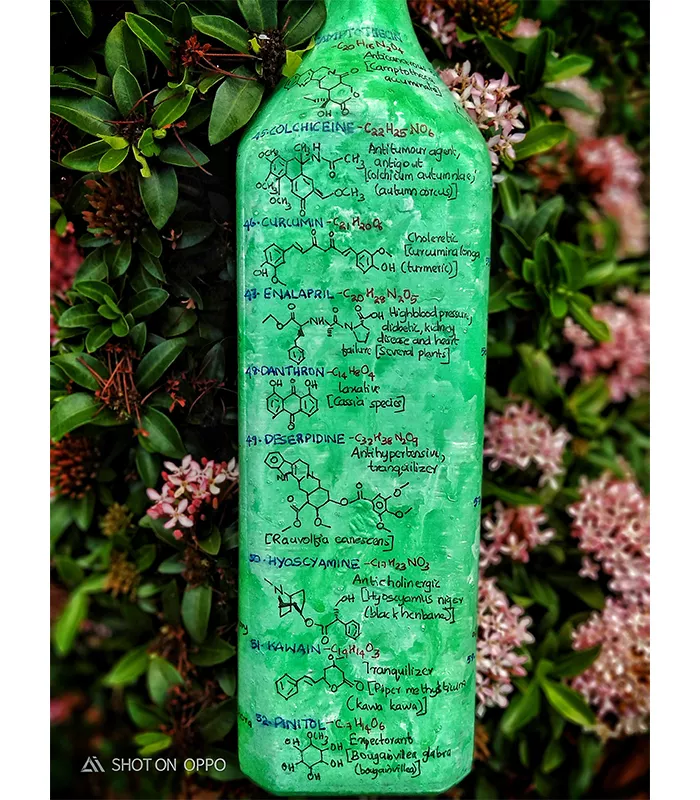 C20 H16 N2O4
Anticancerous
[Camptotheca
acuminata]
OH
45. COLCHICEINE - C22 H25 NO6
OCH3 CH3 H
N CH3
OCH3
OCH3 OCH3
Antitumour agent,
antigout
[colchicum autumnlae,]
(autumn corcus)]
46. CURCUMIN - C21 H20O6
Choleretic
[curcumira longa
OH (turmeric)]
OH
47. ENALAPRIL - C20 H28 N2O5
OH Highblood pressure,
NH diabetic, kidney
disease and heart
failure [several plants]
48. DANTHRON - C14 H8O4
OH O OH
Laxative
[Cassia species]
O
49. DESERPIDINE - C32 H38 N2O9
Antihypertensive,
tranquilizer
[Rauvolfia canescens]
50. HYOSCYAMINE - C17 H23 NO3
Anticholinergic
OH [Hyoscyamus niger
(black henbane)]
51. KAWAIN - C19 H14 O3
Tranquilizer
[Piper methysticum
(kawa kawa)]
52. PINITOL - C7 H14 O6
OCH3 Expectorant
OH OH [Bougainvillea glabra
OH OH (bougainvillea)]
OH
SHOT ON OPPO